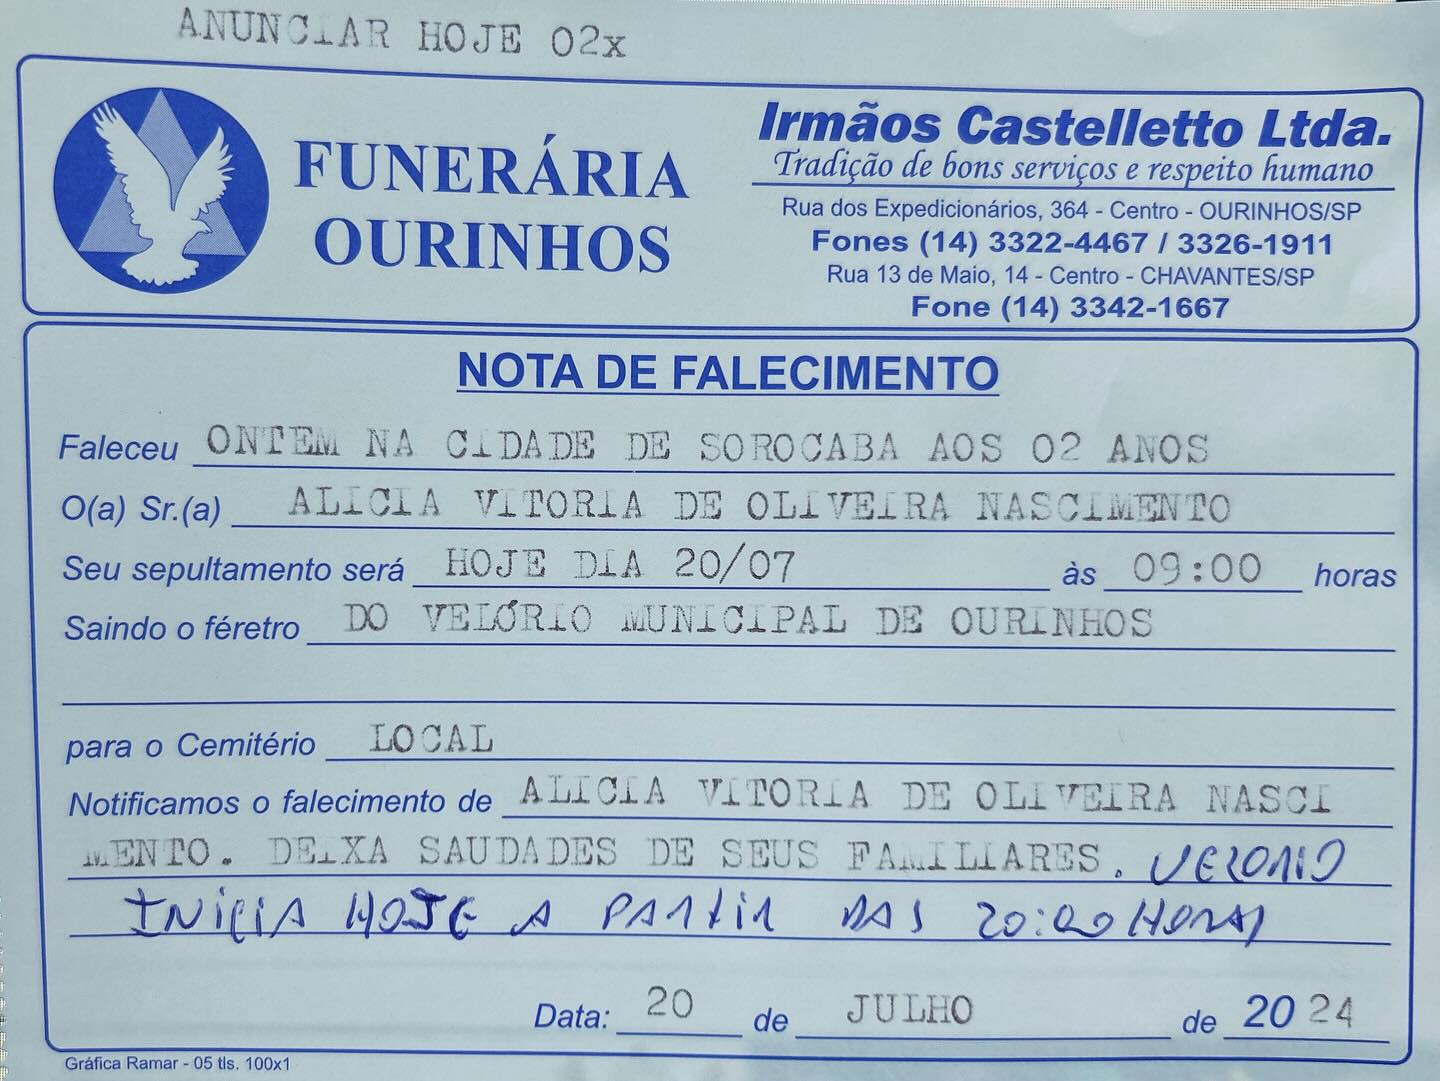 ANUNCIAR HOJE 02x
FUNERÁRIA
OURINHOS
Irmãos Castelletto Ltda.
Tradição de bons serviços e respeito humano
Rua dos Expedicionários, 364 - Centro - OURINHOS/SP
Fones (14) 3322-4467 / 3326-1911
Rua 13 de Maio, 14 - Centro - CHAVANTES/SP
Fone (14) 3342-1667
NOTA DE FALECIMENTO
Faleceu ONTEM NA CIDADE DE SOROCABA AOS 02 ANOS
O(a) Sr.(a) ALICIA VITORIA DE OLIVEIRA NASCIMENTO
Seu sepultamento será HOJE DIA 20/07 às 09:00 horas
Saindo o féretro DO VELÓRIO MUNICIPAL DE OURINHOS
para o Cemitério LOCAL
Notificamos o falecimento de ALICIA VITORIA DE OLIVEIRA NASCI
MENTO. DEIXA SAUDADES DE SEUS FAMILIARES. VELORIO
INICIA HOJE A PARTIR DAS 20:00 HORAS
Data: 20 de JULHO de 2024
Gráfica Ramar - 05 tls. 100x1